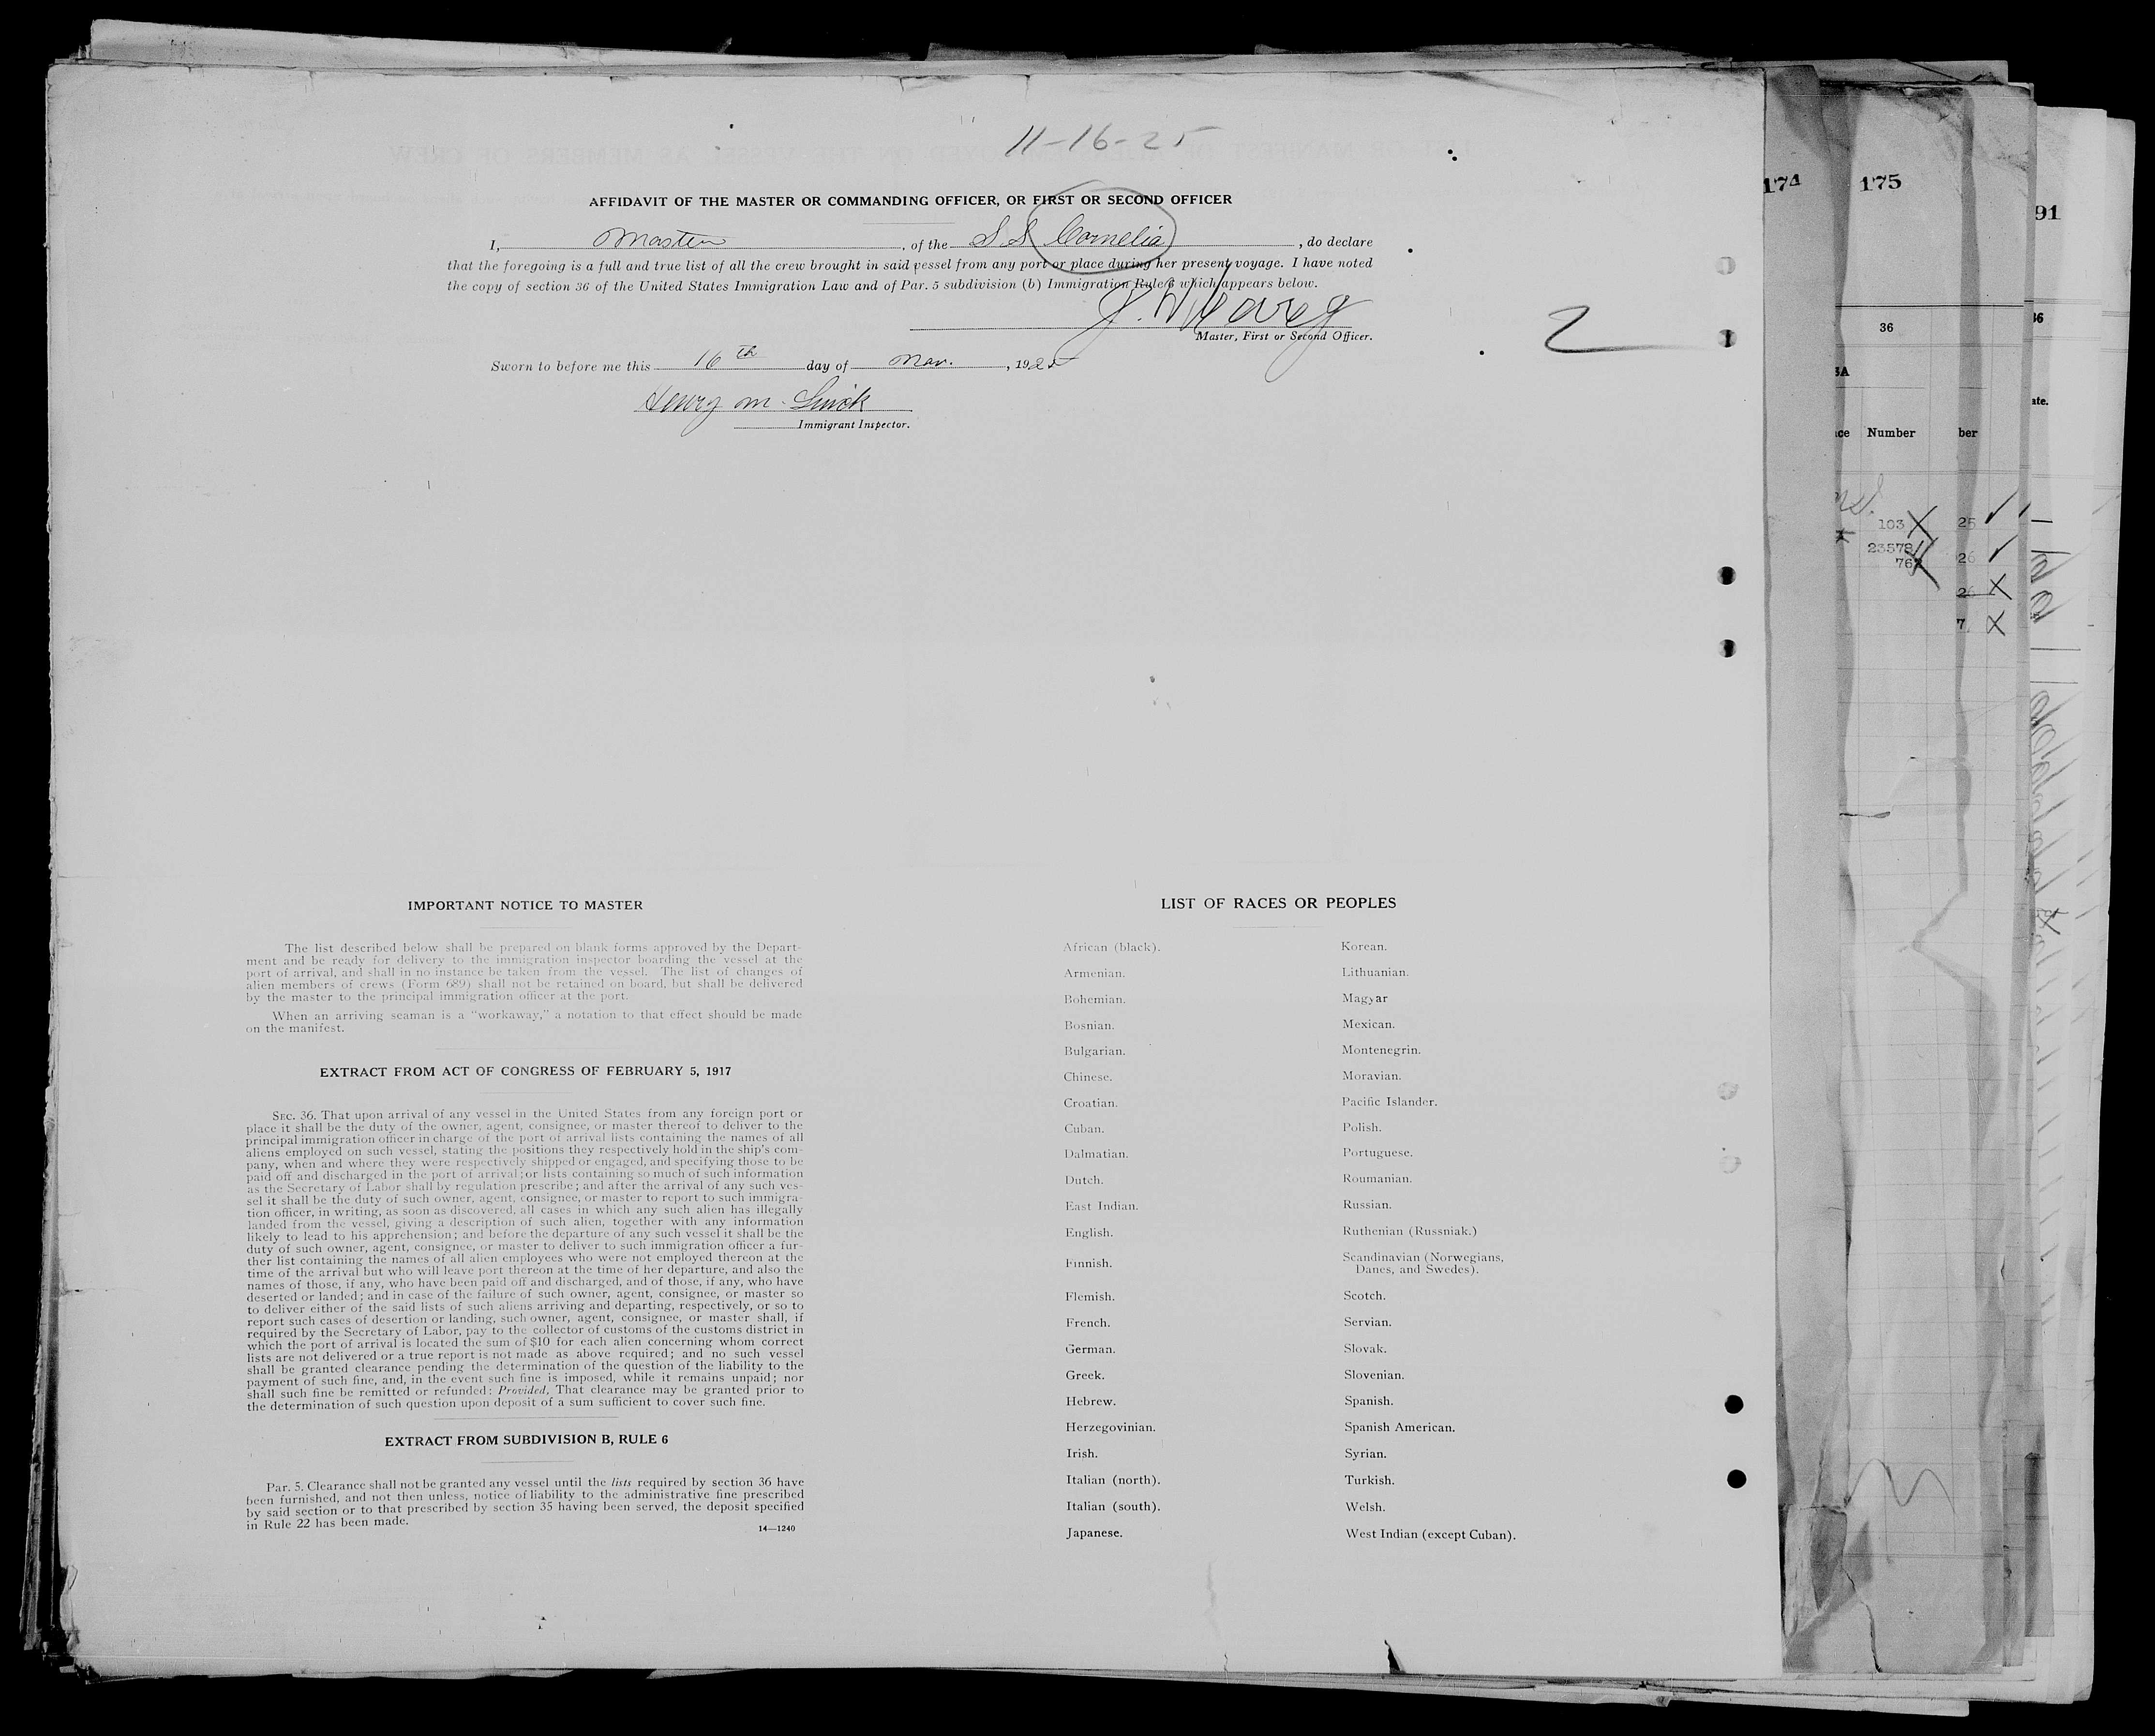 11-16-25
AFFIDAVIT OF THE MASTER OR COMMANDING OFFICER, OR FIRST OR SECOND OFFICER
I, Master, of the S.S. Cornelia, do declare
that the foregoing is a full and true list of all the crew brought in said vessel from any port or place during her present voyage. I have noted
the copy of section 36 of the United States Immigration Law and of Par. 5 subdivision (b) Immigration Rule 6 which appears below.
Master, First or Second Officer.
2
Sworn to before me this 16th day of Nov., 1925
Henry M.
Immigrant Inspector.
IMPORTANT NOTICE TO MASTER
The list described below shall be prepared on blank forms approved by the Depart-
ment and be ready for delivery to the immigration inspector boarding the vessel at the
port of arrival, and shall in no instance be taken from the vessel. The list of changes of
alien members of crews (Form 689) shall not be retained on board, but shall be delivered
by the master to the principal immigration officer at the port.
When an arriving seaman is a "workaway," a notation to that effect should be made
on the manifest.
EXTRACT FROM ACT OF CONGRESS OF FEBRUARY 5, 1917
SEC. 36. That upon arrival of any vessel in the United States from any foreign port or
place it shall be the duty of the owner, agent, consignee, or master thereof to deliver to the
principal immigration officer in charge of the port of arrival lists containing the names of all
aliens employed on such vessel, stating the positions they respectively hold in the ship's com-
pany, when and where they were respectively shipped or engaged, and specifying those to be
paid off and discharged in the port of arrival; or lists containing so much of such information
as the Secretary of Labor shall by regulation prescribe; and after the arrival of any such ves-
sel it shall be the duty of such owner, agent, consignee, or master to report to such immigra-
tion officer, in writing, as soon as discovered, all cases in which any such alien has illegally
landed from the vessel, giving a description of such alien, together with any information
likely to lead to his apprehension; and before the departure of any such vessel it shall be the
duty of such owner, agent, consignee, or master to deliver to such immigration officer a fur-
ther list containing the names of all alien employees who were not employed thereon at the
time of the arrival but who will leave port thereon at the time of her departure, and also the
names of those, if any, who have been paid off and discharged, and of those, if any, who have
deserted or landed; and in case of the failure of such owner, agent, consignee, or master so
to deliver either of the said lists of such aliens arriving and departing, respectively, or so to
report such cases of desertion or landing, such owner, agent, consignee, or master shall, if
required by the Secretary of Labor, pay to the collector of customs of the customs district in
which the port of arrival is located the sum of $10 for each alien concerning whom correct
lists are not delivered or a true report is not made as above required; and no such vessel
shall be granted clearance pending the determination of the question of the liability to the
payment of such fine, and, in the event such fine is imposed, while it remains unpaid; nor
shall such fine be remitted or refunded: Provided, That clearance may be granted prior to
the determination of such question upon deposit of a sum sufficient to cover such fine.
EXTRACT FROM SUBDIVISION B, RULE 6
Par. 5. Clearance shall not be granted any vessel until the lists required by section 36 have
been furnished, and not then unless, notice of liability to the administrative fine prescribed
by said section or to that prescribed by section 35 having been served, the deposit specified
in Rule 22 has been made.
14—1240
LIST OF RACES OR PEOPLES
African (black).
Armenian.
Bohemian.
Bosnian.
Bulgarian.
Chinese.
Croatian.
Cuban.
Dalmatian.
Dutch.
East Indian.
English.
Finnish.
Flemish.
French.
German.
Greek.
Hebrew.
Herzegovinian.
Irish.
Italian (north).
Italian (south).
Japanese.
Korean.
Lithuanian.
Magyar
Mexican.
Montenegrin.
Moravian.
Pacific Islander.
Polish.
Portuguese.
Roumanian.
Russian.
Ruthenian (Russniak.)
Scandinavian (Norwegians,
Danes, and Swedes).
Scotch.
Servian.
Slovak.
Slovenian.
Spanish.
Spanish American.
Syrian.
Turkish.
Welsh.
West Indian (except Cuban).
174
175
91
36
Number
ber
103
25
26